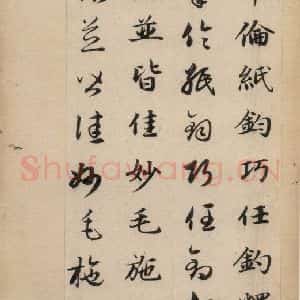 倫紙鈞巧任釣
倫紙鈞巧任釣
並皆佳妙毛施
並皆佳妙毛施
Shufawang.CN